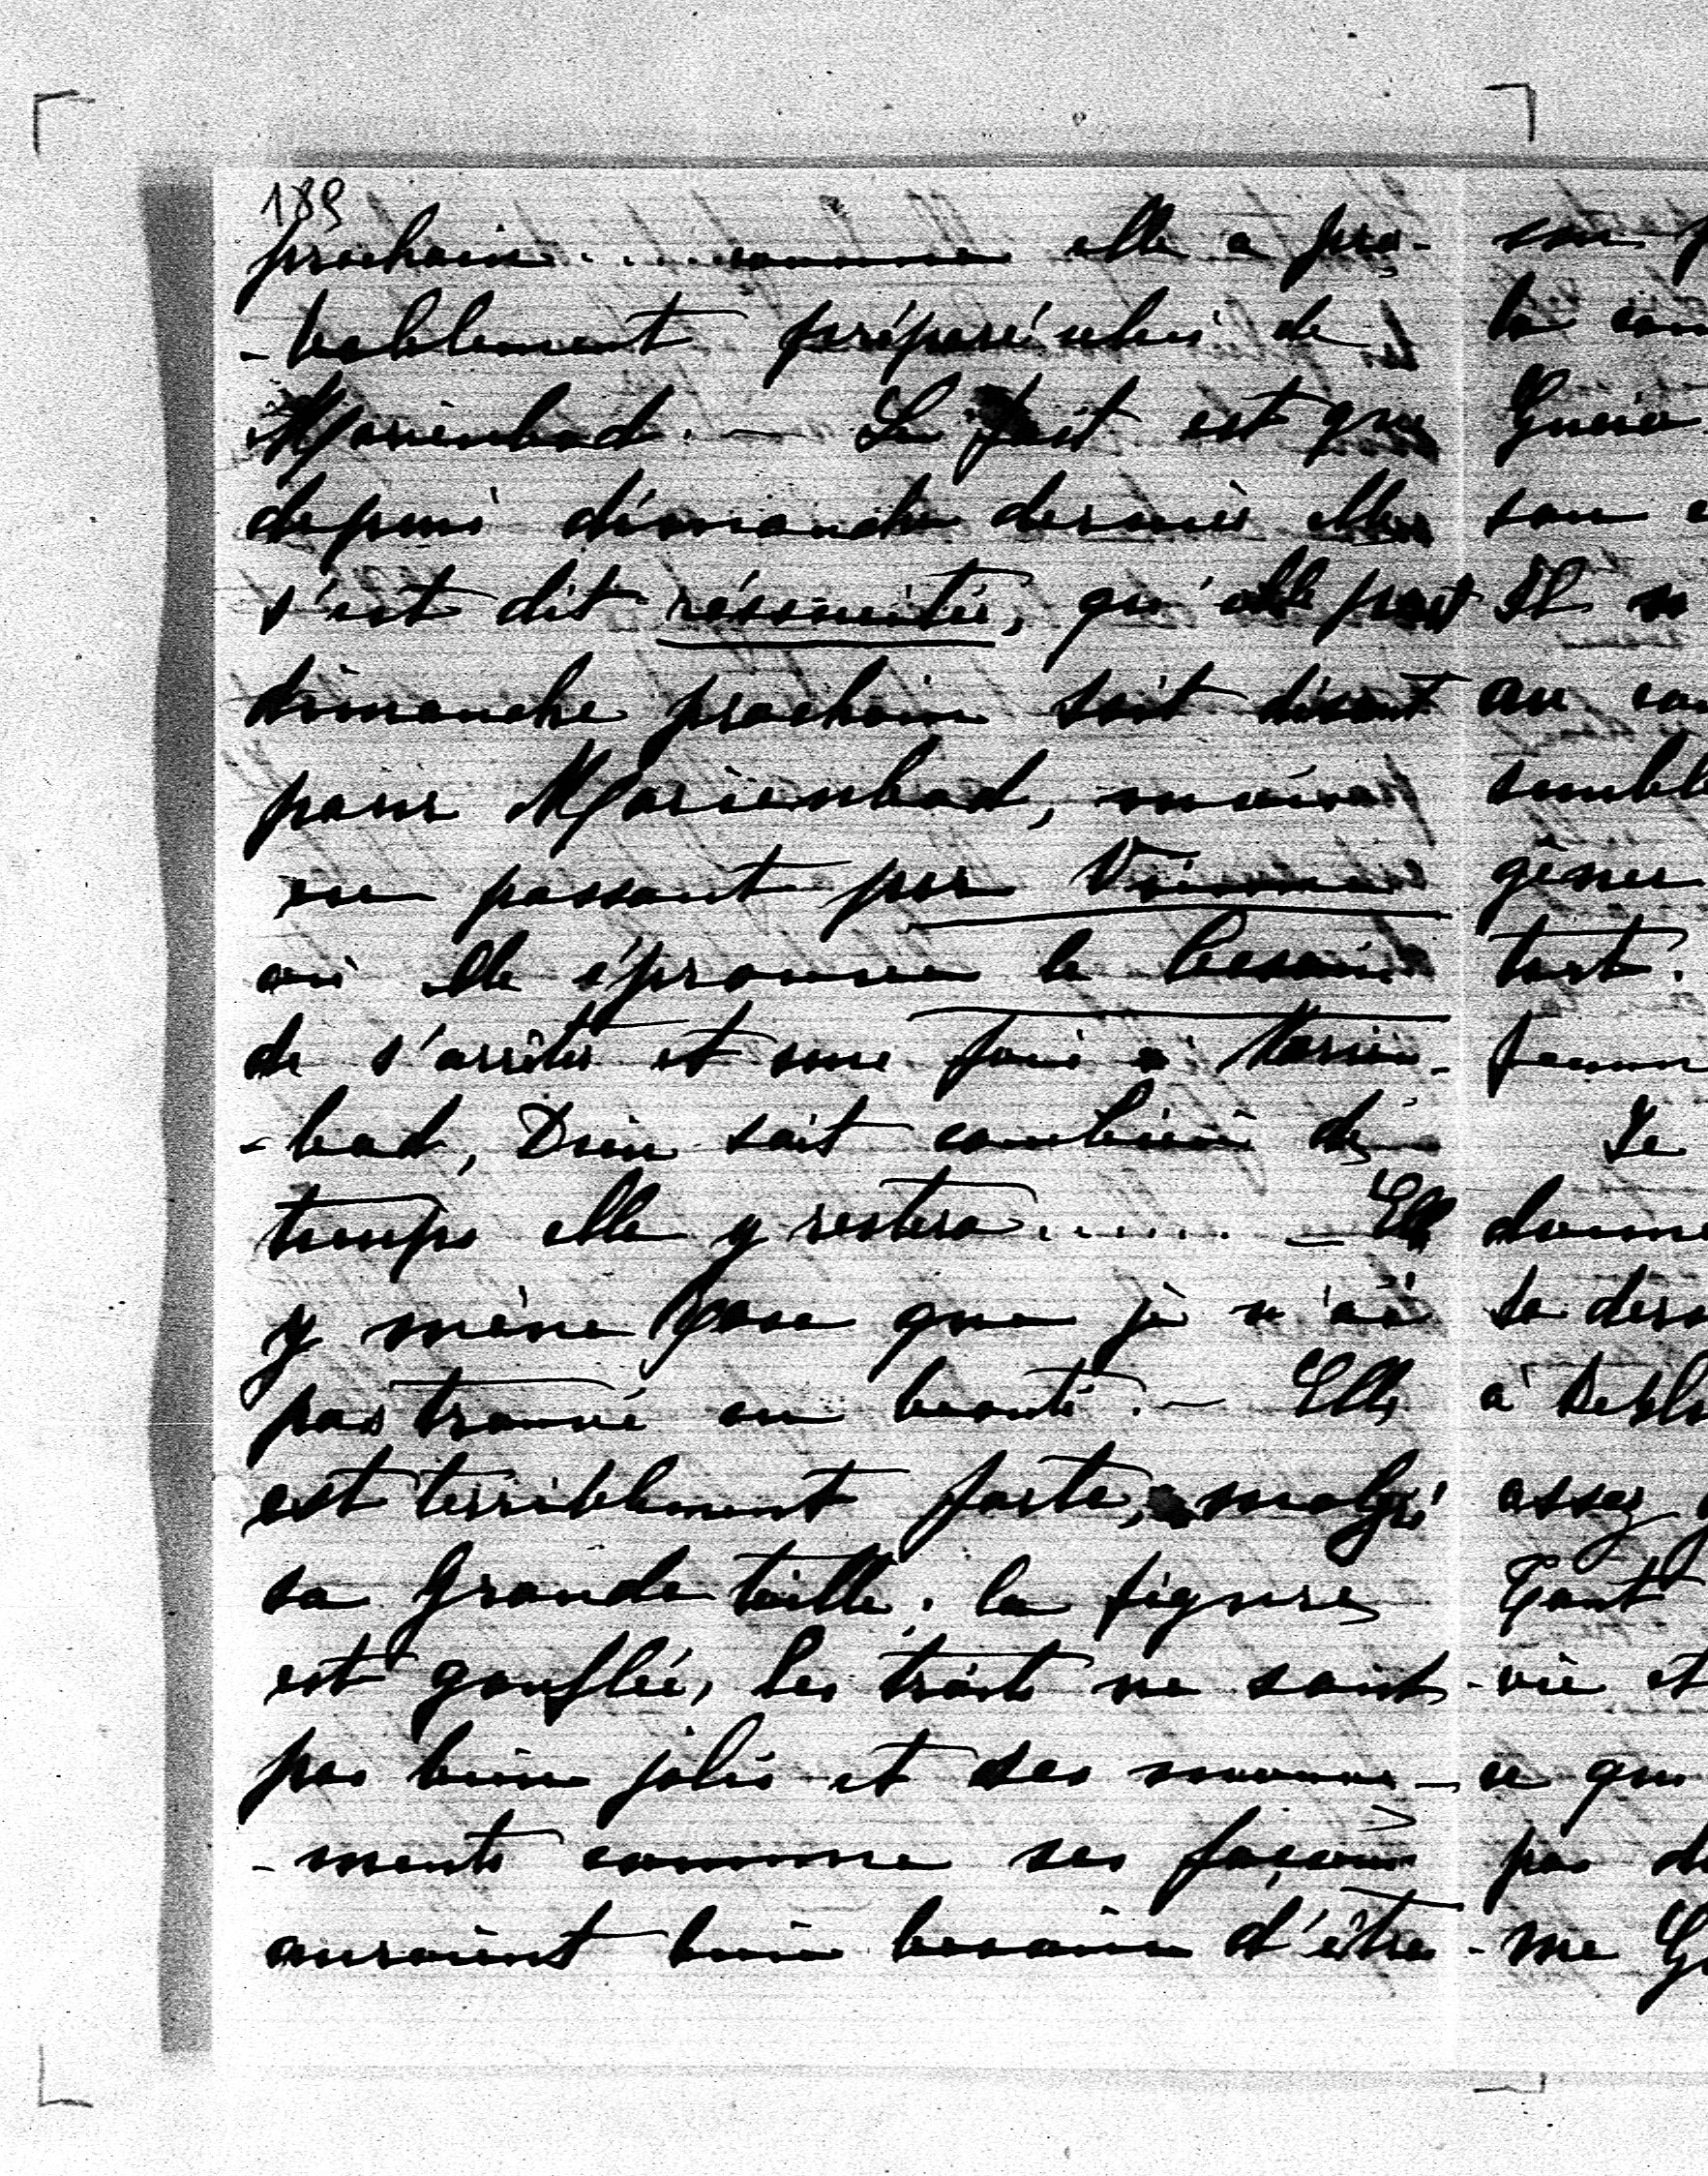 189
prochain.... comme elle a pro-
-bablement préparé celui de
Marienbad. — Le fait est que
depuis dimanche dernier elle
s'est dit réssucitée, qu'elle part
dimanche prochain soit disant
pour Marienbad,
en passant par Vienne
où elle éprouve le besoin
de s'arrêter et une fois à Marien-
-bad, Dieu sait combien de
temps elle y restera....... — Elle
y mène que je n'ai
pas trouvé en beauté. — Elle
est terriblement forte, malgré
sa grande taille, la figure
est gonflée, les traits ne sont
pas bien jolis et ses mouve-
-ments comme ses façons
auraient bien besoin d'être
son
la
sou
Il
au
semble
gêner
tort.
Je
donne
sa
à
assez
Tant
-vie et
ce qui
pas
-me